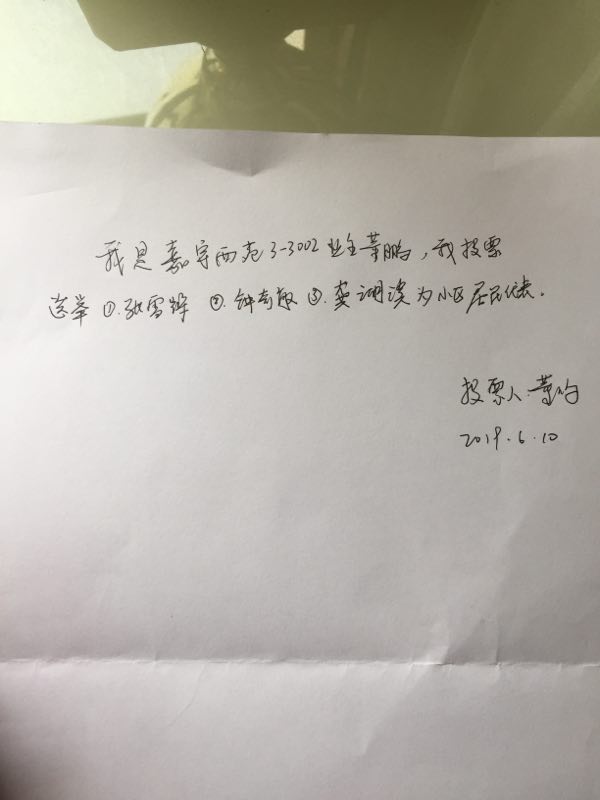 我是嘉宇西苑3-3002业主董鹏，我投票
选举①.张雪锋 ②.钟 敏 ③.龚 为小区居民代表.
投票人:董
2019.6.10